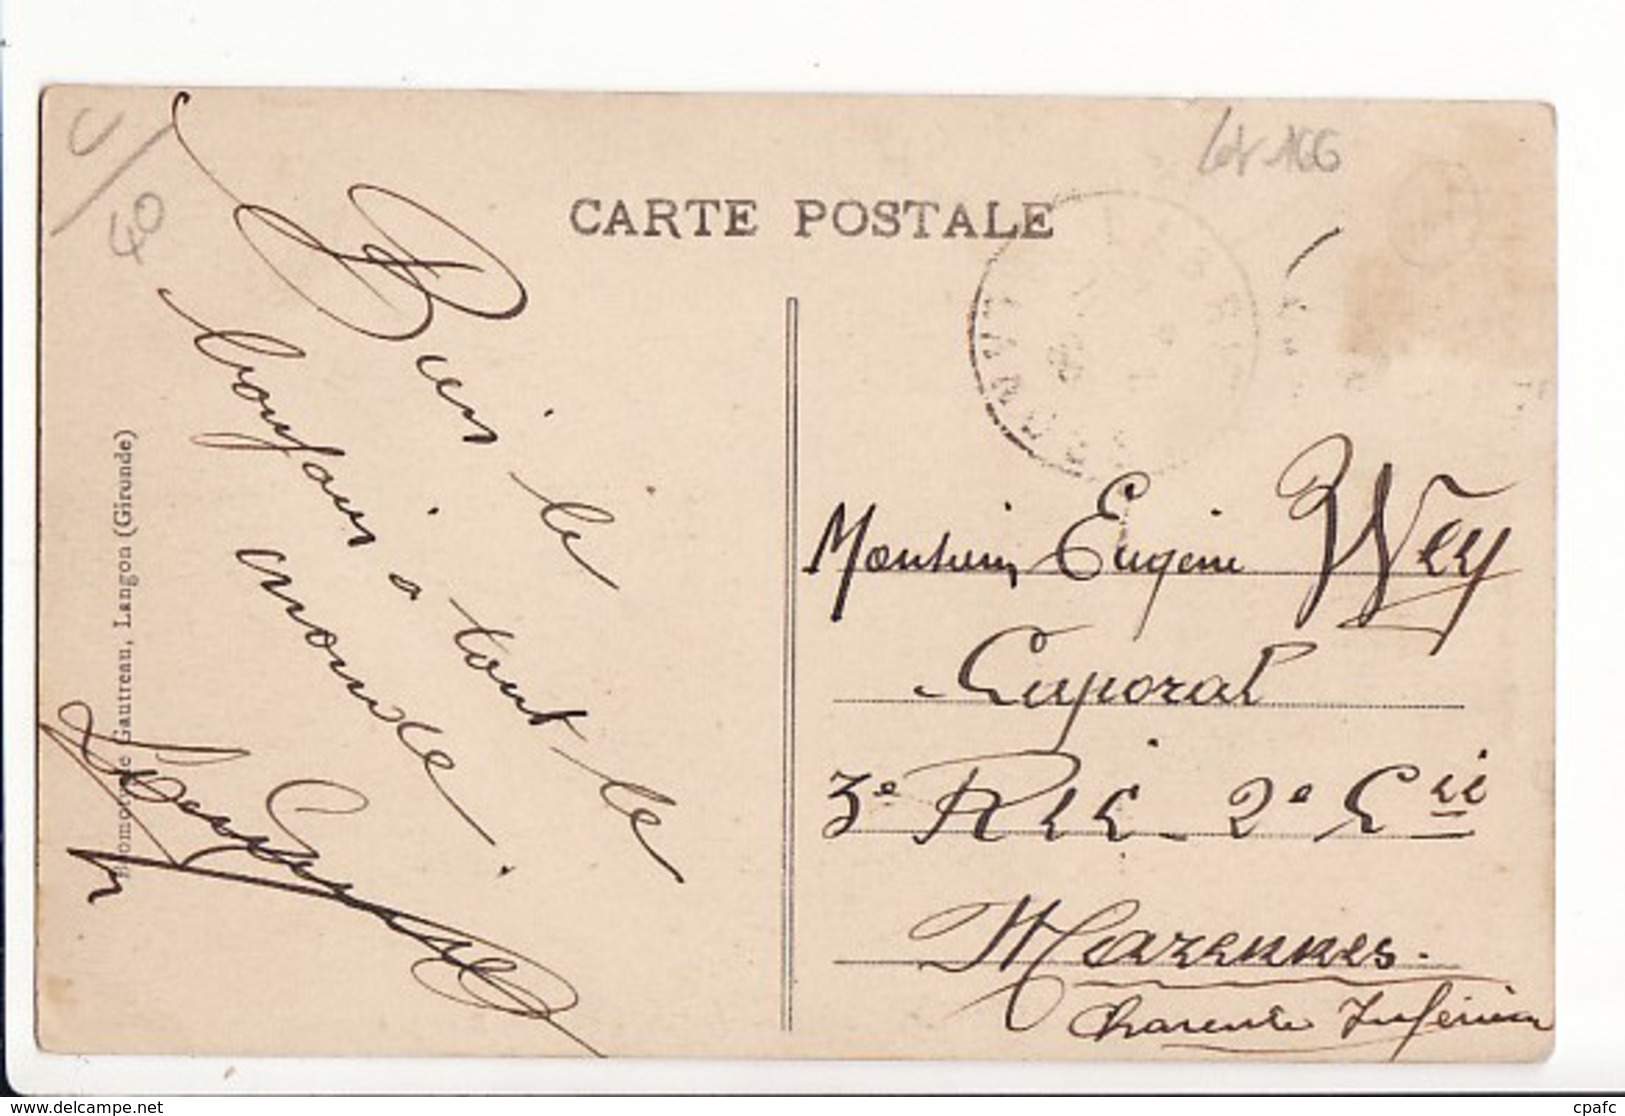 U/40
Lot 166
CARTE POSTALE
Bien le
bonjour
a tout le
monde.
Gautreau, Langon (Gironde)
Monsieur Eugène Wey
Caporal
3e 2e Cie
Marennes.
Charente Inférieure
delcampe.net
cpafc